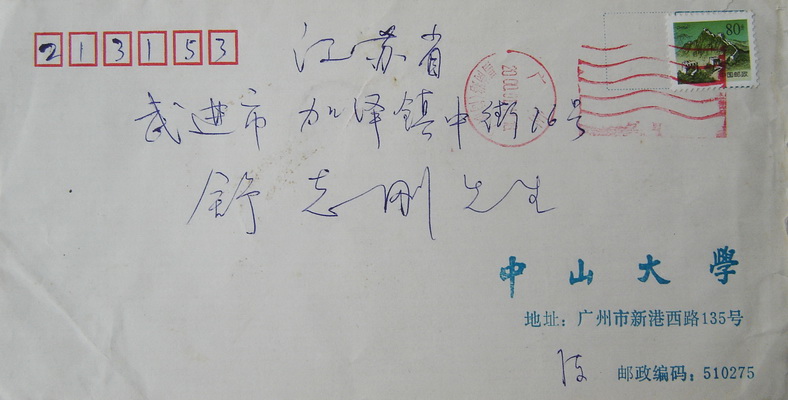 213153
江苏省
武进市加泽镇中街16号
舒志刚先生
80分
中国邮政
中山大學
地址：广州市新港西路135号
邮政编码：510275